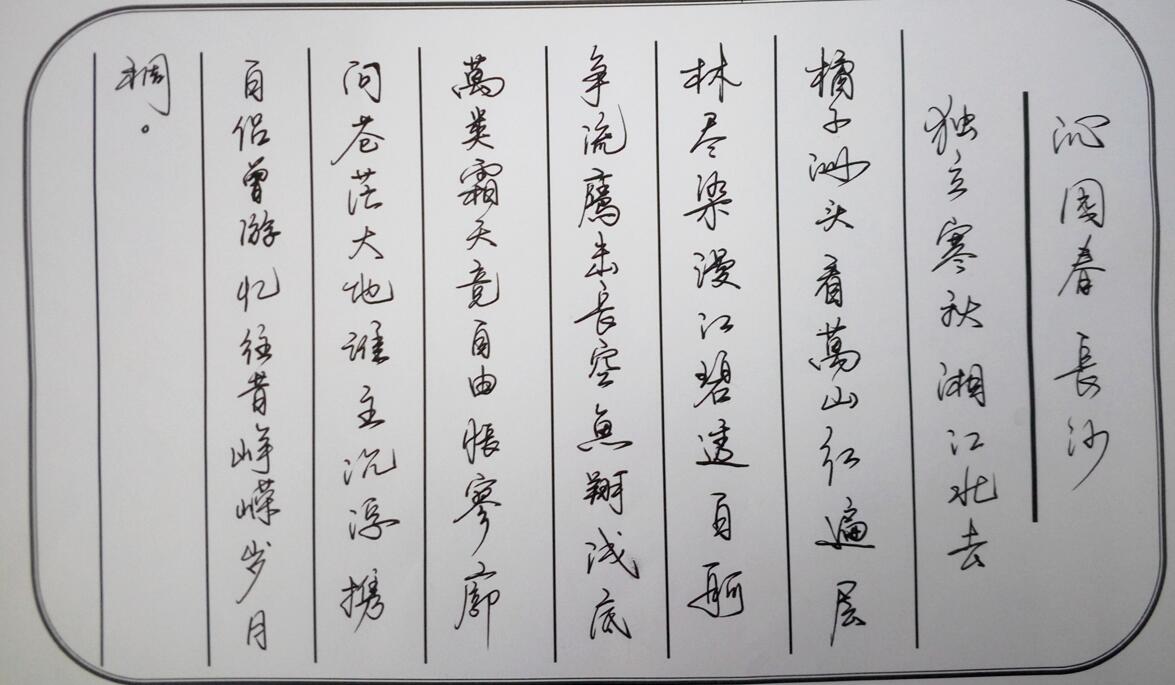 沁园春 長沙
独立寒秋湘江北去
橘子洲头看萬山红遍层
林尽染漫江碧透百舸
争流鹰击長空鱼翔浅底
萬类霜天竞自由怅寥廓
问苍茫大地谁主沉浮携
百侣曾游忆往昔峥嵘岁月
稠。